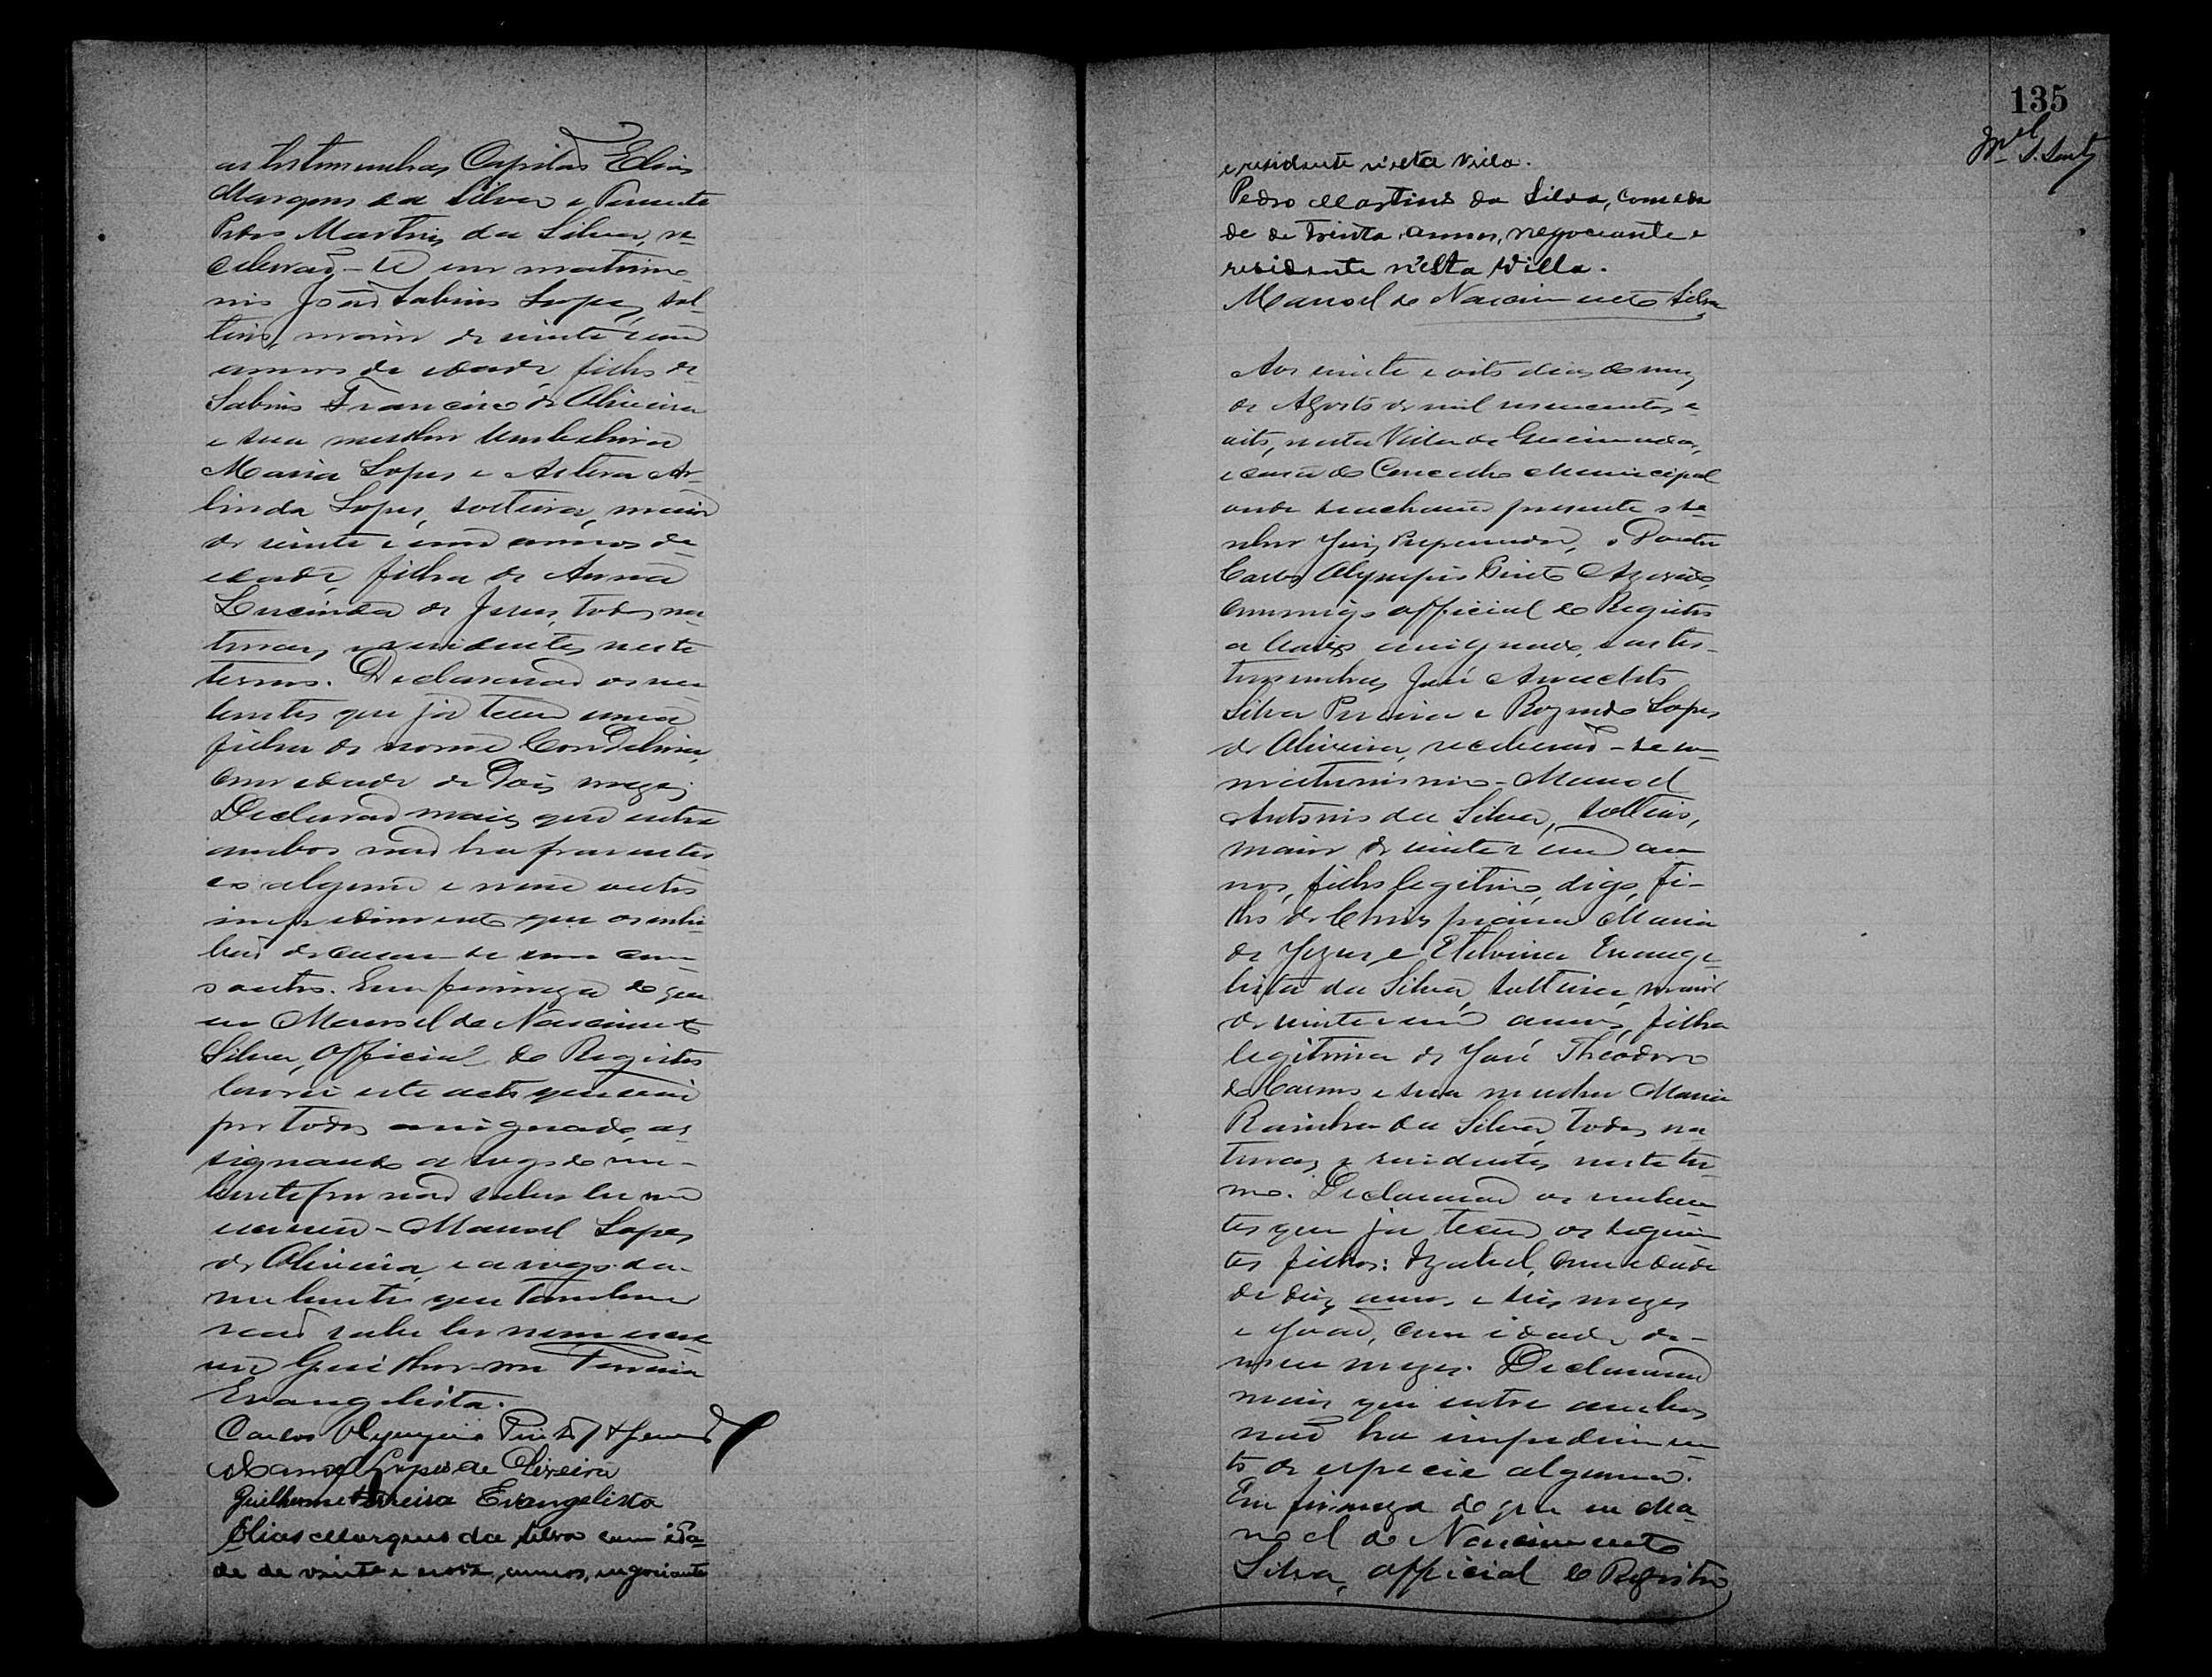 as testemunhas Capitão Elias
Marques da Silva e Tenente
Pedro Martins da Silva, re-
ceberão-se em matrimo-
nio João Sabino Lopes, sol-
teiro, maior de vinte e um
annos de idade, filho de
Sabino Francisco de Oliveira
e sua mulher Umbelina
Maria Lopes e Arlinda
Lopes, solteira, maior
de vinte e um annos de
idade, filha de Anna
Lucinda de Jesus, todos na-
turaes e residentes neste
termo. Declararão os nu-
bentes que já teem uma
filha de nome
com idade de dois mezes
Declarão mais que entre
ambos não ha parentes-
co algum e nem outro
impedimento que os inhi-
bão de casar-se um com
o outro. Em firmeza do que
eu Manoel do Nascimento
Silva, Official do Registro
lavrei este acto que vai
por todos assignado, as-
signando a rogo do nu-
bente por não saber ler nem
escrever - Manoel Lopes
de Oliveira e a rogo da
nubente que tambem
não sabe ler nem escre-
ver Guilherme Ferreira
Evangelista.
Carlos Olympio Pinto Azevedo
Manoel Lopes de Oliveira
Guilherme Ferreira Evangelista
Elias Marques da Silva com ida-
de de vinte e nove annos, negociante
135
e residente n'esta Villa.
Pedro Martins da Silva, com ida
de de trinta annos, negociante e
residente n'esta Villa.
Manoel do Nascimento Silva
Aos vinte e oito dias do mez
de Agosto de mil novecentos e
oito, nesta Villa de
e casa do Concelho Municipal
onde se achava presente o Se-
nhor Juiz Preparador, o Doutor
Carlos Olympio Pinto Azevedo,
commigo official do Registro
a baixo assignado, e as tes-
temunhas José Anacleto
Silva Pereira e Rozendo Lopes
de Oliveira, receberão-se em
matrimonio - Manoel
Antonio da Silva, solteiro,
maior de vinte e um an-
nos, filho legitimo, digo, fi-
lho de Chrispiana Maria
de Jezus, e Etelvina Evange-
lista da Silva, solteira, maior
de vinte e um annos, filha
legitima de José Theodoro
do Carmo e sua mulher Maria
Rainha da Silva, todos na-
turaes e residentes neste ter-
mo. Declararão os nuben-
tes que já teem os seguin-
tes filhos: Izabel, com idade
de annos e seis mezes
e João, com idade de
mezes. Declararão
mais que entre ambos
não ha impedimen-
to de especie alguma.
Em firmeza do que eu Ma-
noel do Nascimento
Silva, official do Registro